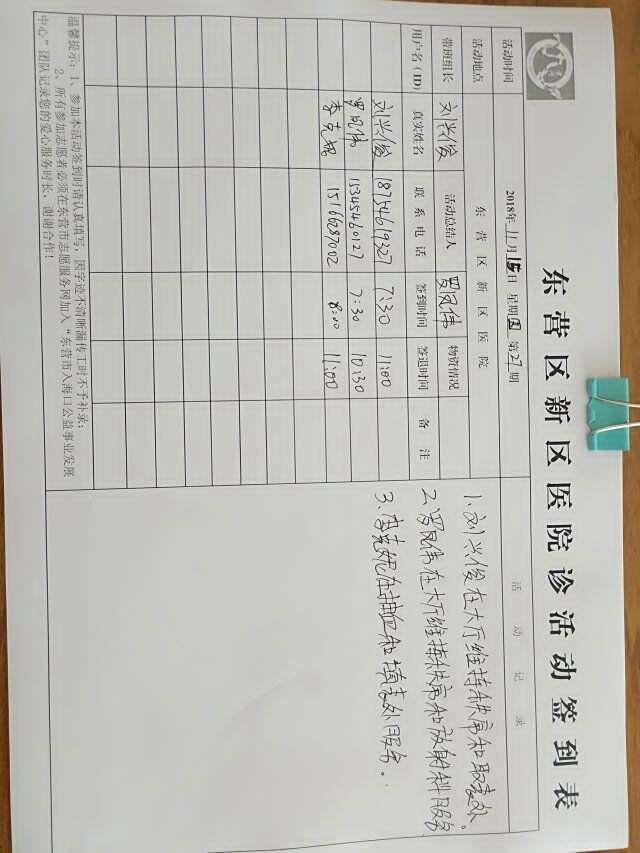 东营区新区医院诊活动签到表
活动时间 2018年 11月 15日 星期四 第27期
活动地点 东营区新区医院
活动记录
带班组长 刘兴俊 活动总结人 罗凤伟 物资情况
用户名(ID) 真实姓名 联系电话 签到时间 签退时间 备注
刘兴俊 18754619327 7:30 11:00
罗凤伟 15345460127 7:30 10:30
李克妮 15166287002 8:00 11:00
1、刘兴俊在大厅维持秩序和取表处。
2、罗凤伟在大厅维持秩序和放射科服务
3、李克妮在抽血和填表处服务。
温馨提示:1、参加本活动签到时请认真填写,因字迹不清晰漏传工时不予补录;
2、所有参加志愿者必须在东营市志愿服务网加入“东营市入海口公益事业发展
中心”团队记录您的爱心服务时长,谢谢合作!